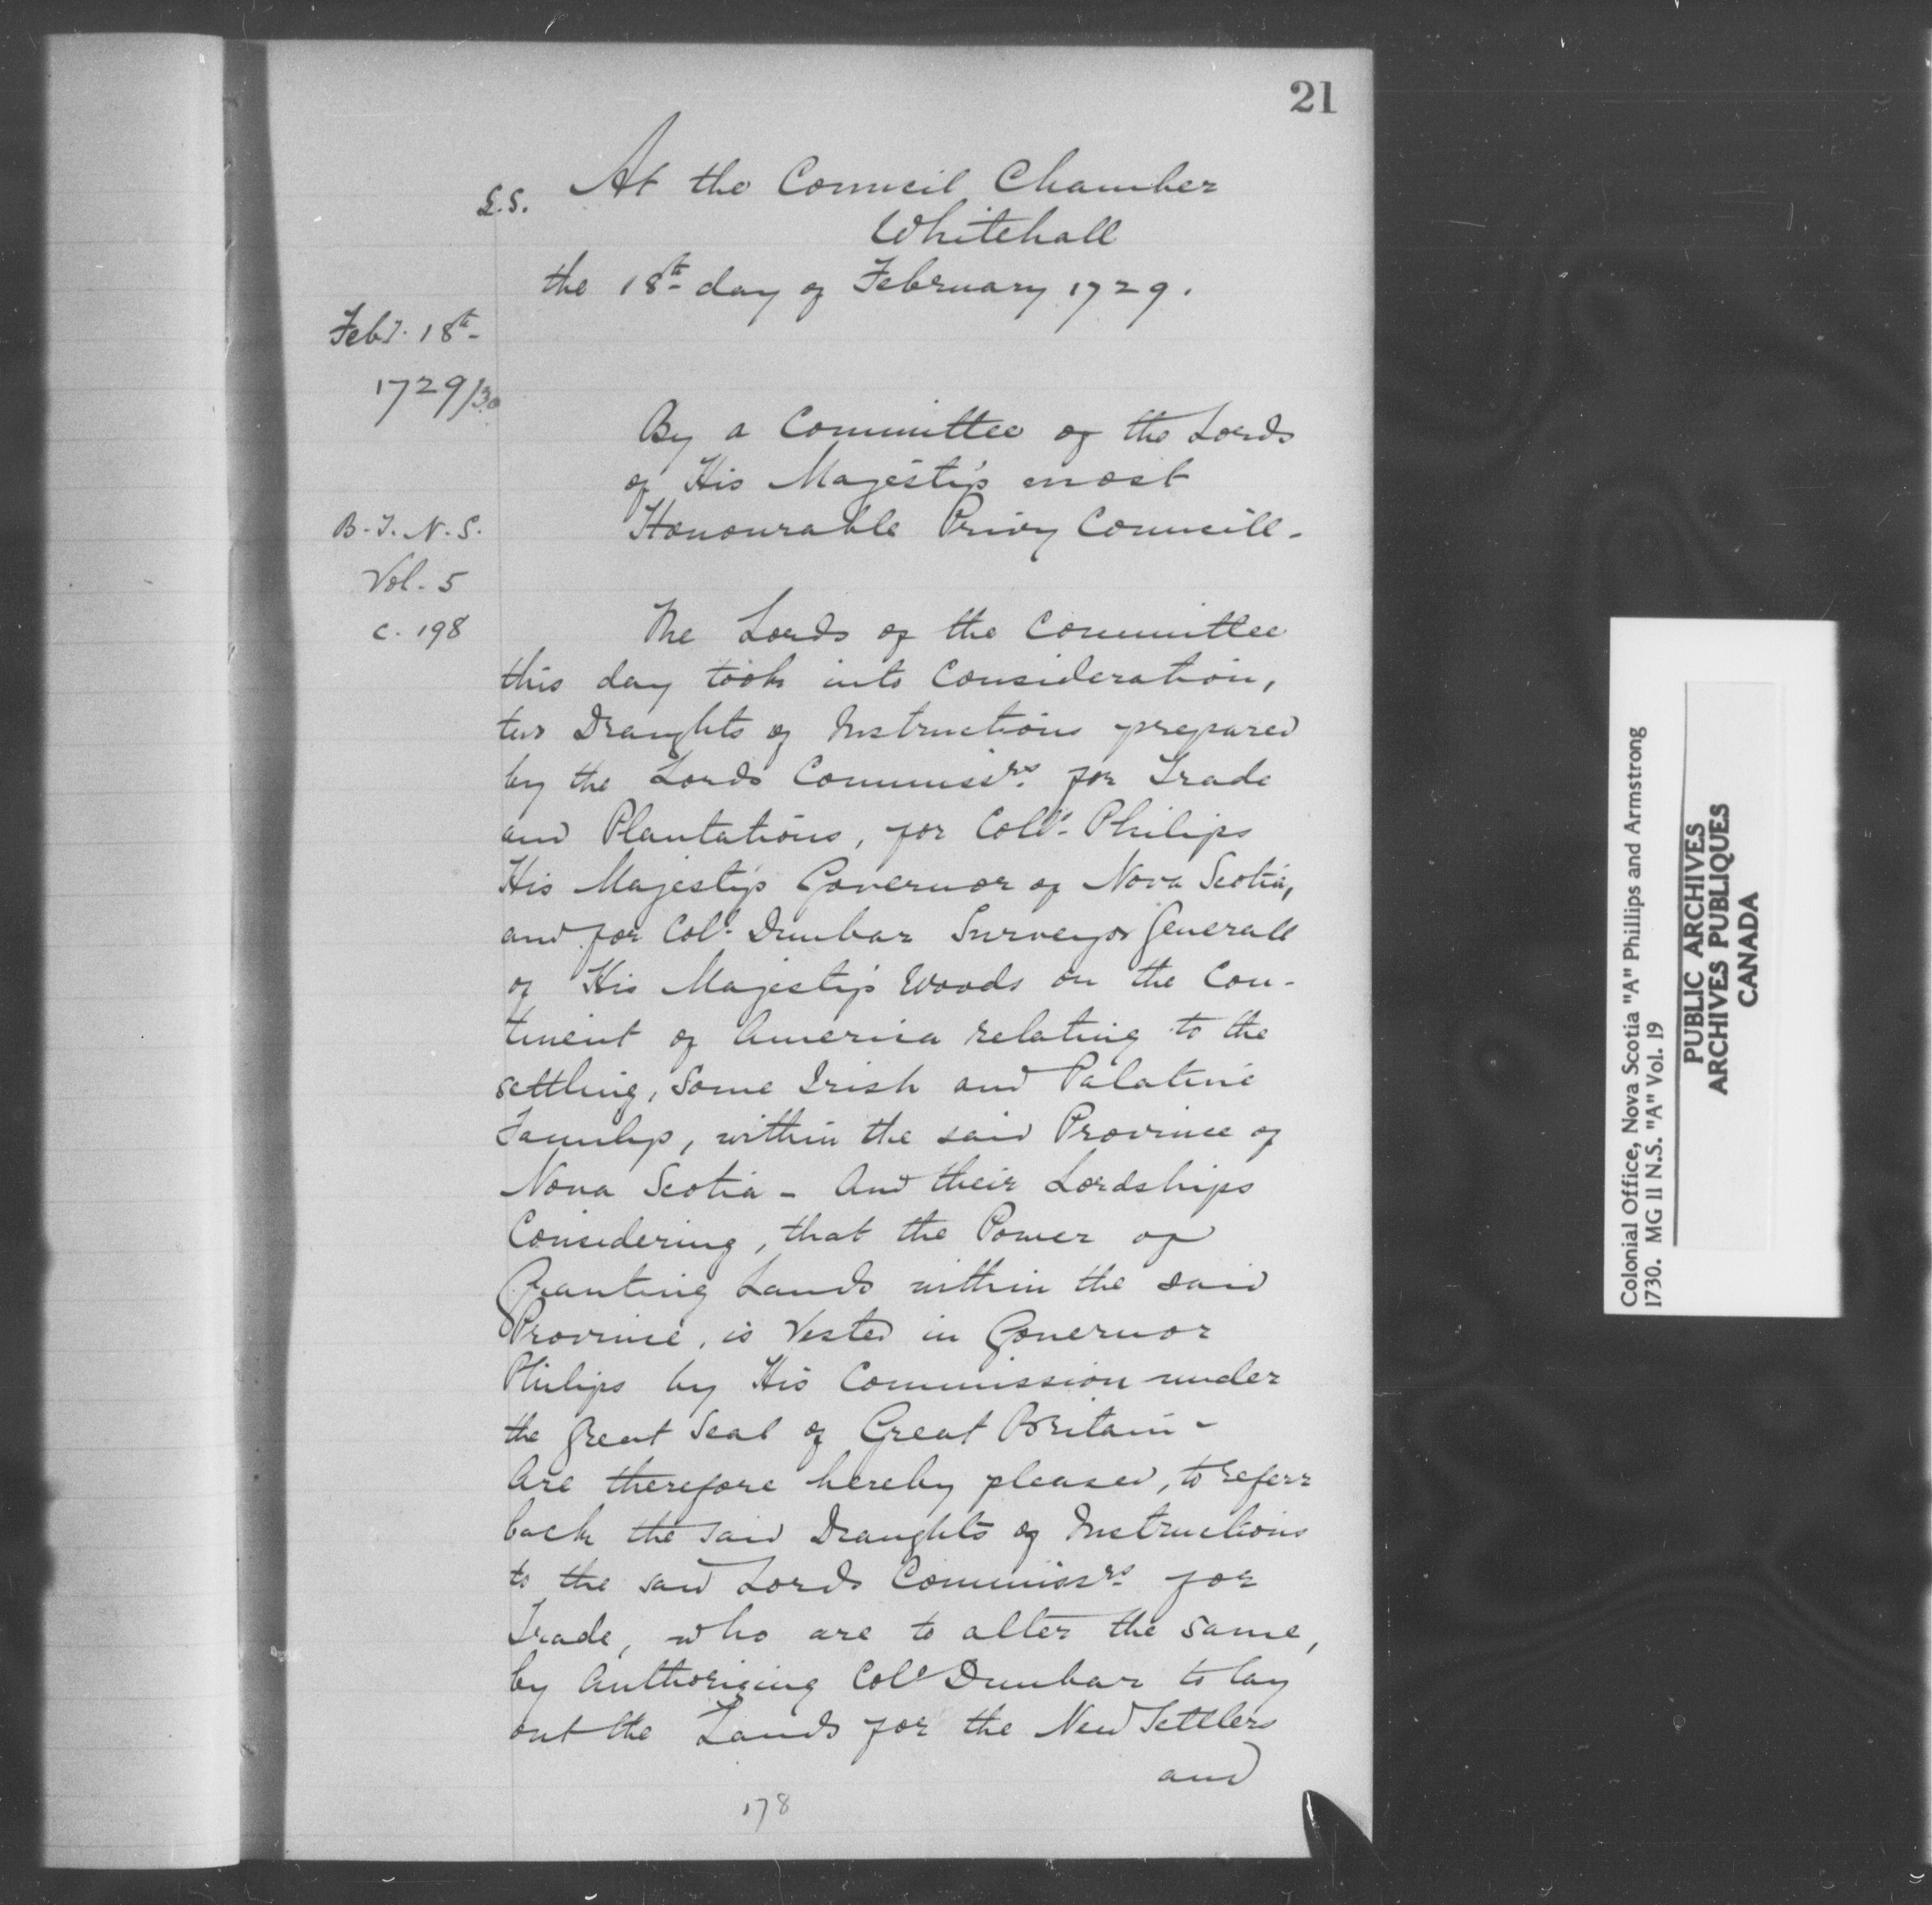 21
L.S. At the Council Chamber
Whitehall
the 18th day of February 1729.
Feby. 18th
1729/30
By a Committee of the Lords
of His Majesty's most
Honourable Privy Councill.
B.T.N.S.
Vol. 5
c. 198
The Lords of the Committee
this day took into Consideration,
two Draughts of Instructions prepared
by the Lords Commissrs. for Trade
and Plantations, for Coll. Philips
His Majesty's Governor of Nova Scotia,
and for Col. Dunbar Surveyor Generall
of His Majesty's Woods on the Con-
tinent of America relating to the
settling, some Irish and Palatine
Familys, within the said Province of
Nova Scotia - And their Lordships
Considering, that the Power of
Granting Lands within the said
Province, is Vested in Governor
Philips by His Commission under
the Great Seal of Great Britain -
Are therefore hereby pleased, to referr
back the said Draughts of Instructions
to the said Lords Commissrs. for
Trade, who are to alter the same,
by Authorizing Col. Dunbar to lay
out the Lands for the New Settlers
and
178
Colonial Office, Nova Scotia "A" Phillips and Armstrong
1730. MG 11 N.S. "A" Vol. 19
PUBLIC ARCHIVES
ARCHIVES PUBLIQUES
CANADA